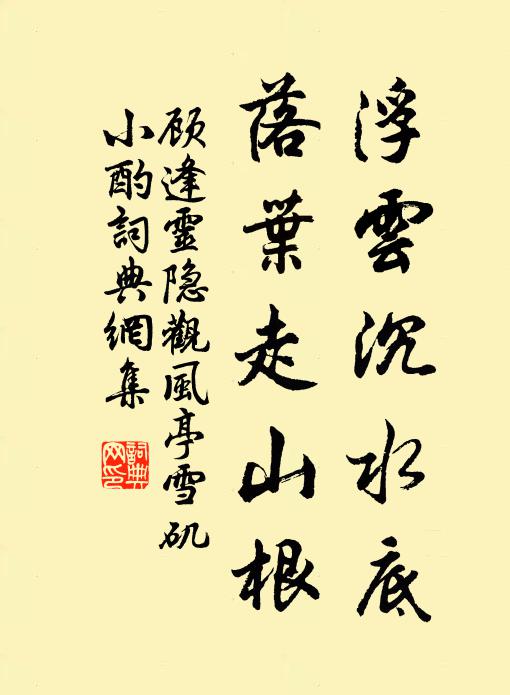 浮雲沉水底
落葉走山根
顾逢靈隐觀風亭雪矶
小酌詞典網集
詞典網印